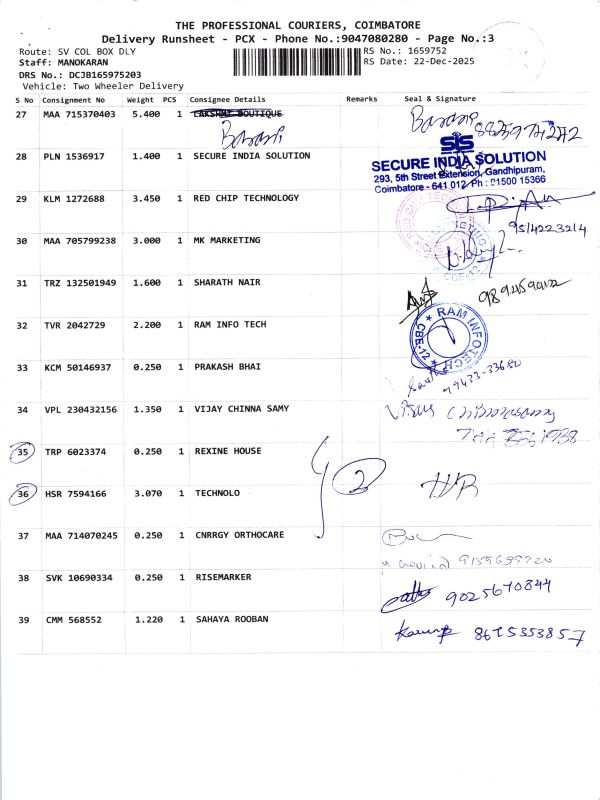 THE PROFESSIONAL COURIERS, COIMBATORE
Delivery Runsheet - PCX - Phone No.:9047080280 - Page No.:3
Route: SV COL BOX DLY RS No.: 1659752
Staff: MANOKARAN RS Date: 22-Dec-2025
DRS No.: DCJB165975203
Vehicle: Two Wheeler Delivery
S No Consignment No Weight PCS Consignee Details Remarks Seal & Signature
27 MAA 715370403 5.400 1 LAKSHMI BOUTIQUE
28 PLN 1536917 1.400 1 SECURE INDIA SOLUTION
SIS
SECURE INDIA SOLUTION
293, 5th Street Extension, Gandhipuram,
Coimbatore - 641 012. Ph : 91500 15366
29 KLM 1272688 3.450 1 RED CHIP TECHNOLOGY
30 MAA 705799238 3.000 1 MK MARKETING
9514223214
31 TRZ 132501949 1.600 1 SHARATH NAIR
32 TVR 2042729 2.200 1 RAM INFO TECH
RAM INFOTECH
CBE-12
33 KCM 50146937 0.250 1 PRAKASH BHAI
79433-33680
34 VPL 230432156 1.350 1 VIJAY CHINNA SAMY
35 TRP 6023374 0.250 1 REXINE HOUSE
2
36 HSR 7594166 3.070 1 TECHNOLO
37 MAA 714070245 0.250 1 CNRRGY ORTHOCARE
38 SVK 10690334 0.250 1 RISEMARKER
9025670844
39 CMM 568552 1.220 1 SAHAYA ROOBAN